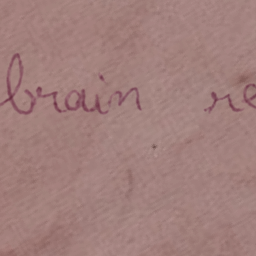 brain re